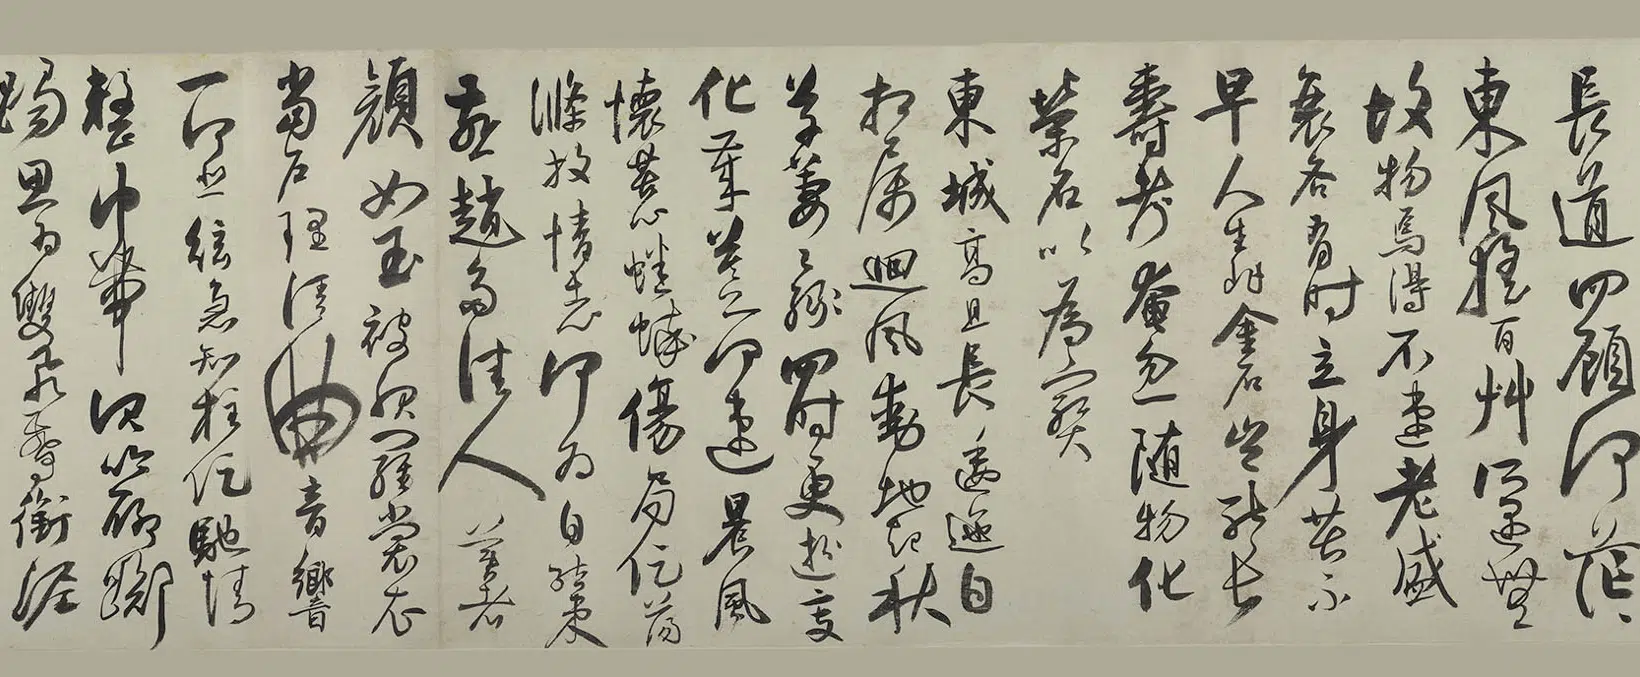 長道四顧何茫〻
東風搖百艸所遇無
故物焉得不速老盛
衰各有時立身苦不
早人生非金石豈能長
壽考奄忽随物化
榮名以為寶
東城高且長逶迤自
相属迴風動地起秋
草萋已綠四時更變
化歲莫一何速晨風
懷苦心蟋蟀傷局促蕩
滌放情志何為自結束
燕趙多佳人美者
顏如玉被服羅裳衣
當戶理清曲音響
一何悲絃急知柱促馳情
整巾帶沉吟聊躑
躅思為雙飛鷰銜泥